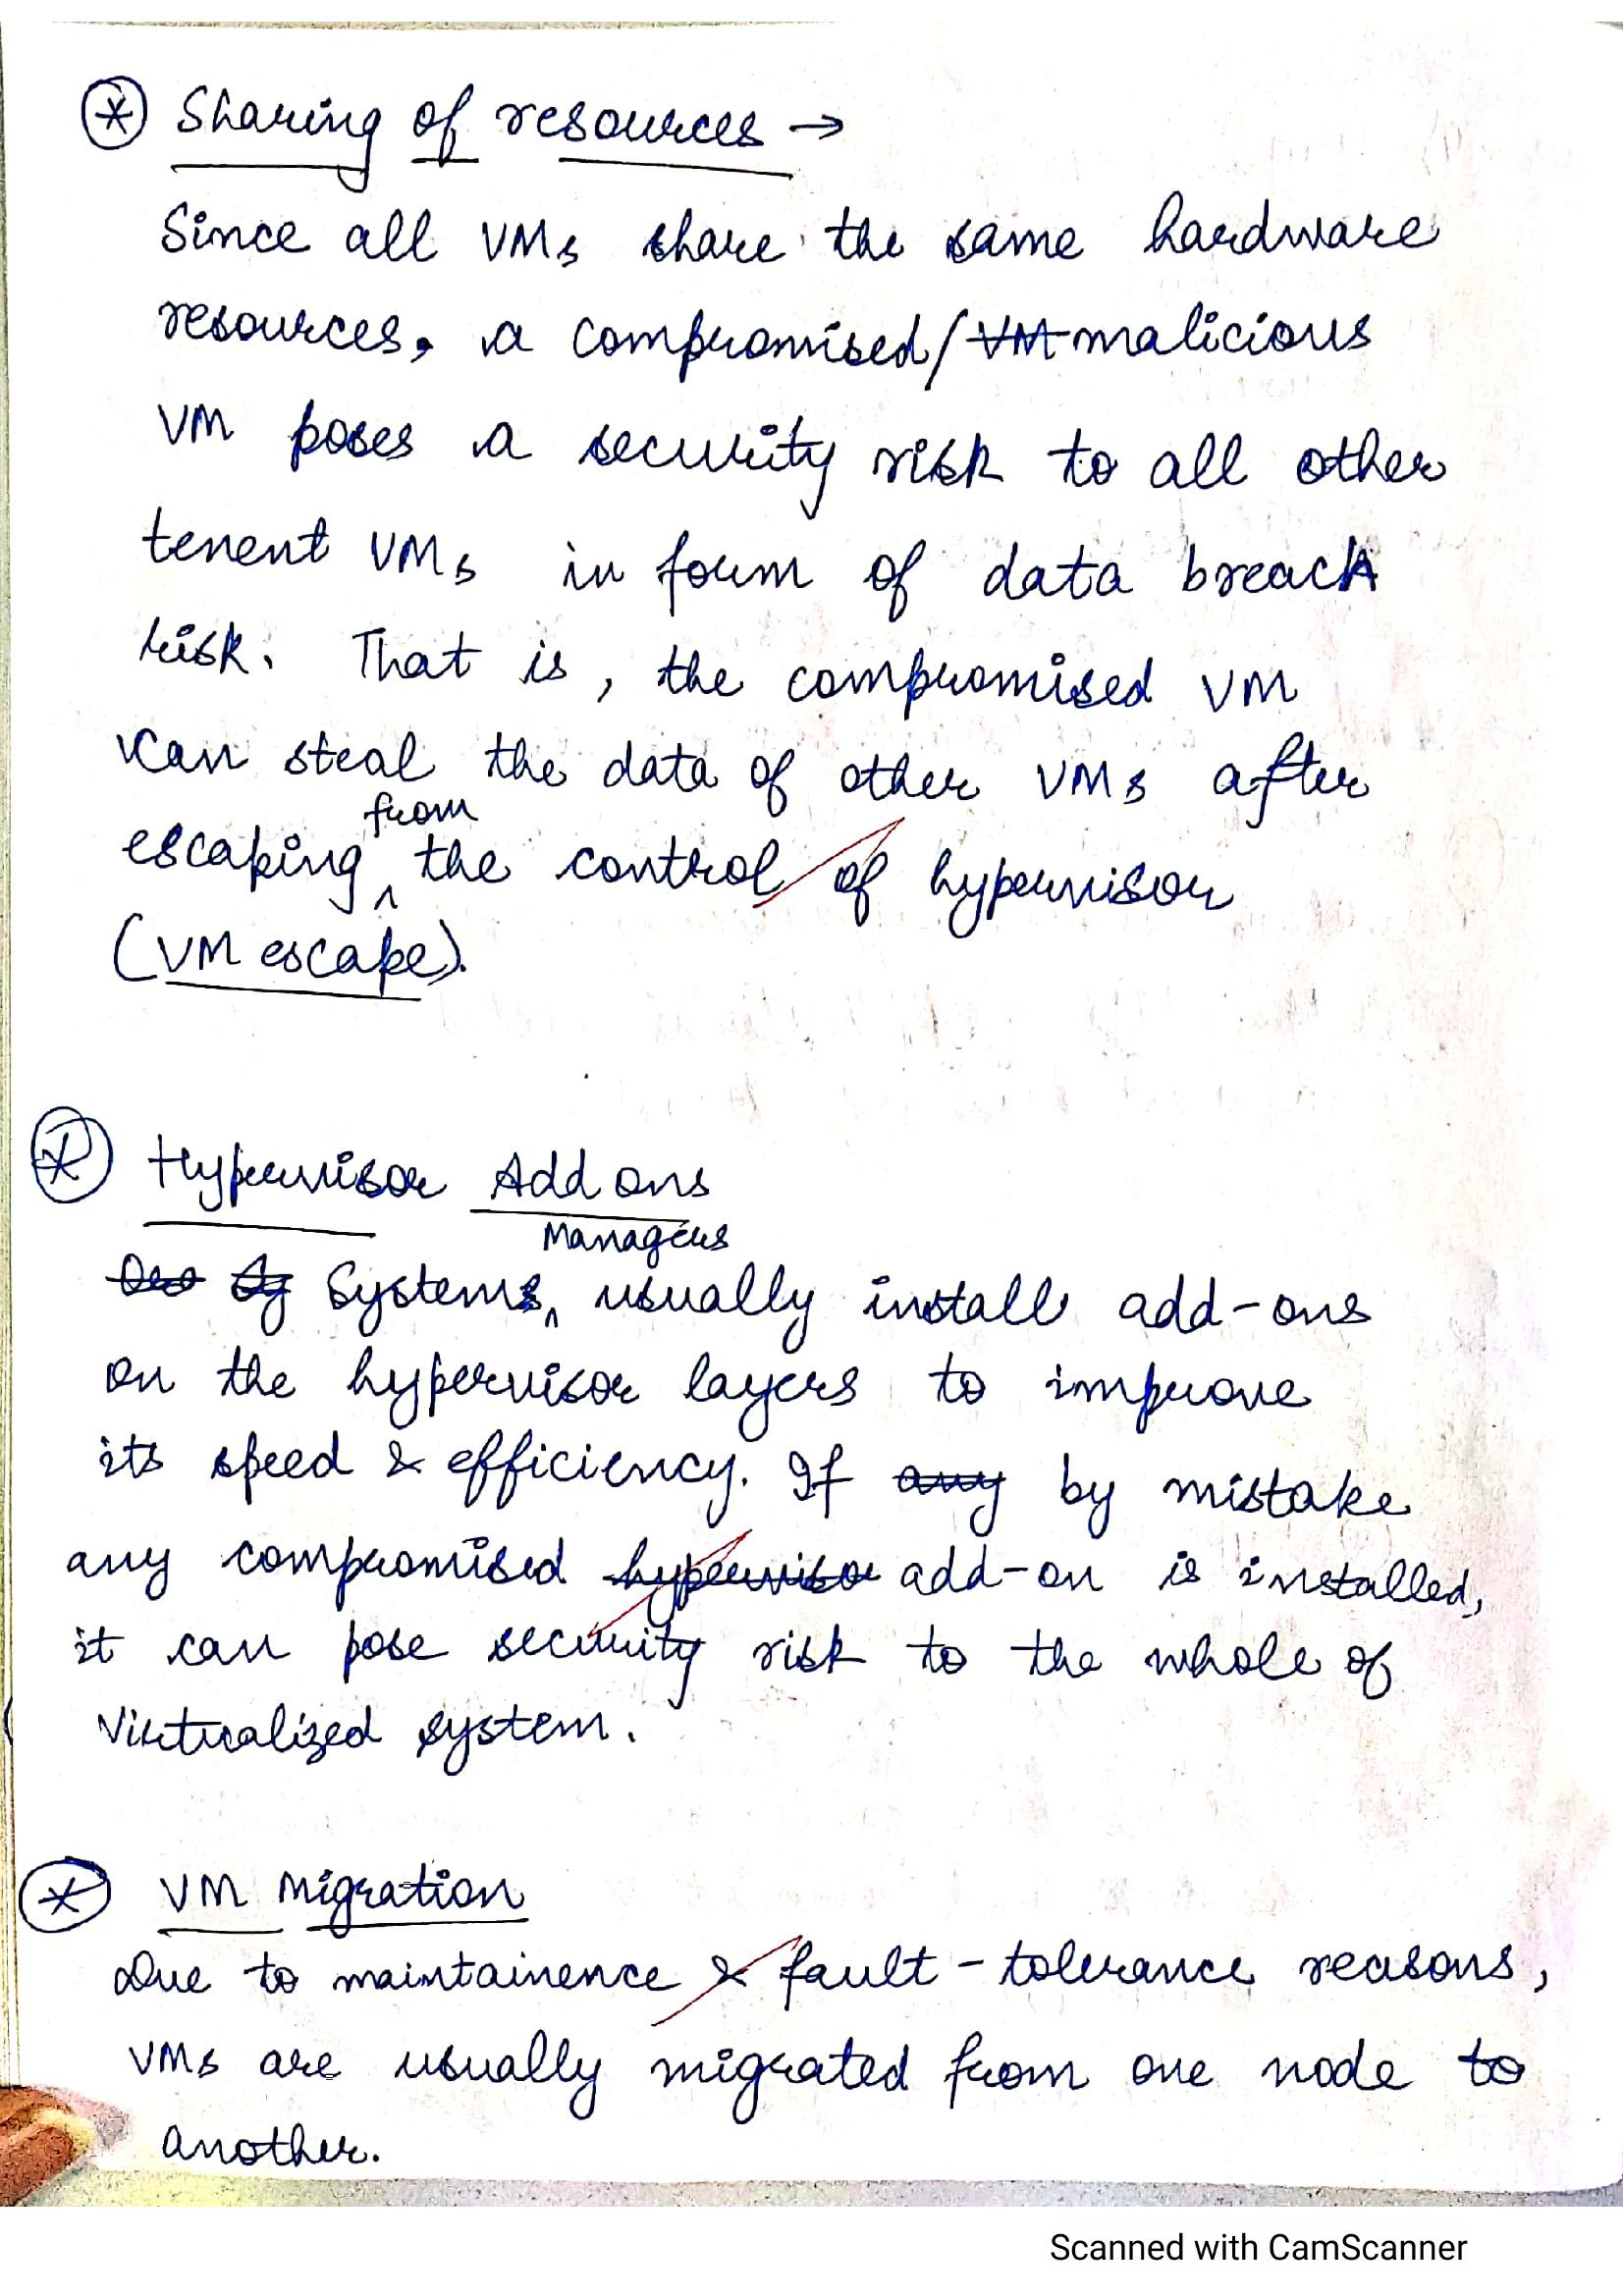 * Sharing of resources →
Since all VMs share the same hardware
resources, a compromised/VM malicious
VM poses a security risk to all other
tenent VMs in form of data breach
risk. That is, the compromised VM
can steal the data of other VMs after
escaping from the control of hypervisor
(VM escape).
* Hypervisor Add ons
Systems Managers usually install add-ons
on the hypervisor layers to improve
its speed & efficiency. If any by mistake
any compromised hypervisor add-on is installed,
it can pose security risk to the whole of
Virtualized system.
* VM Migration
Due to maintainence & fault-tolerance reasons,
VMs are usually migrated from one node to
another.
Scanned with CamScanner